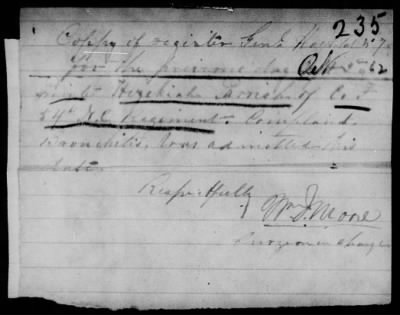 235
Coppy of register Genl Hospital No 7
for the
Oct 62
Hezekiah of Co F
54th N.C. Regiment. Complaint
Bronchitis, was admitted this
date.
Respectfully
Wm J. Moore
Surgeon in charge